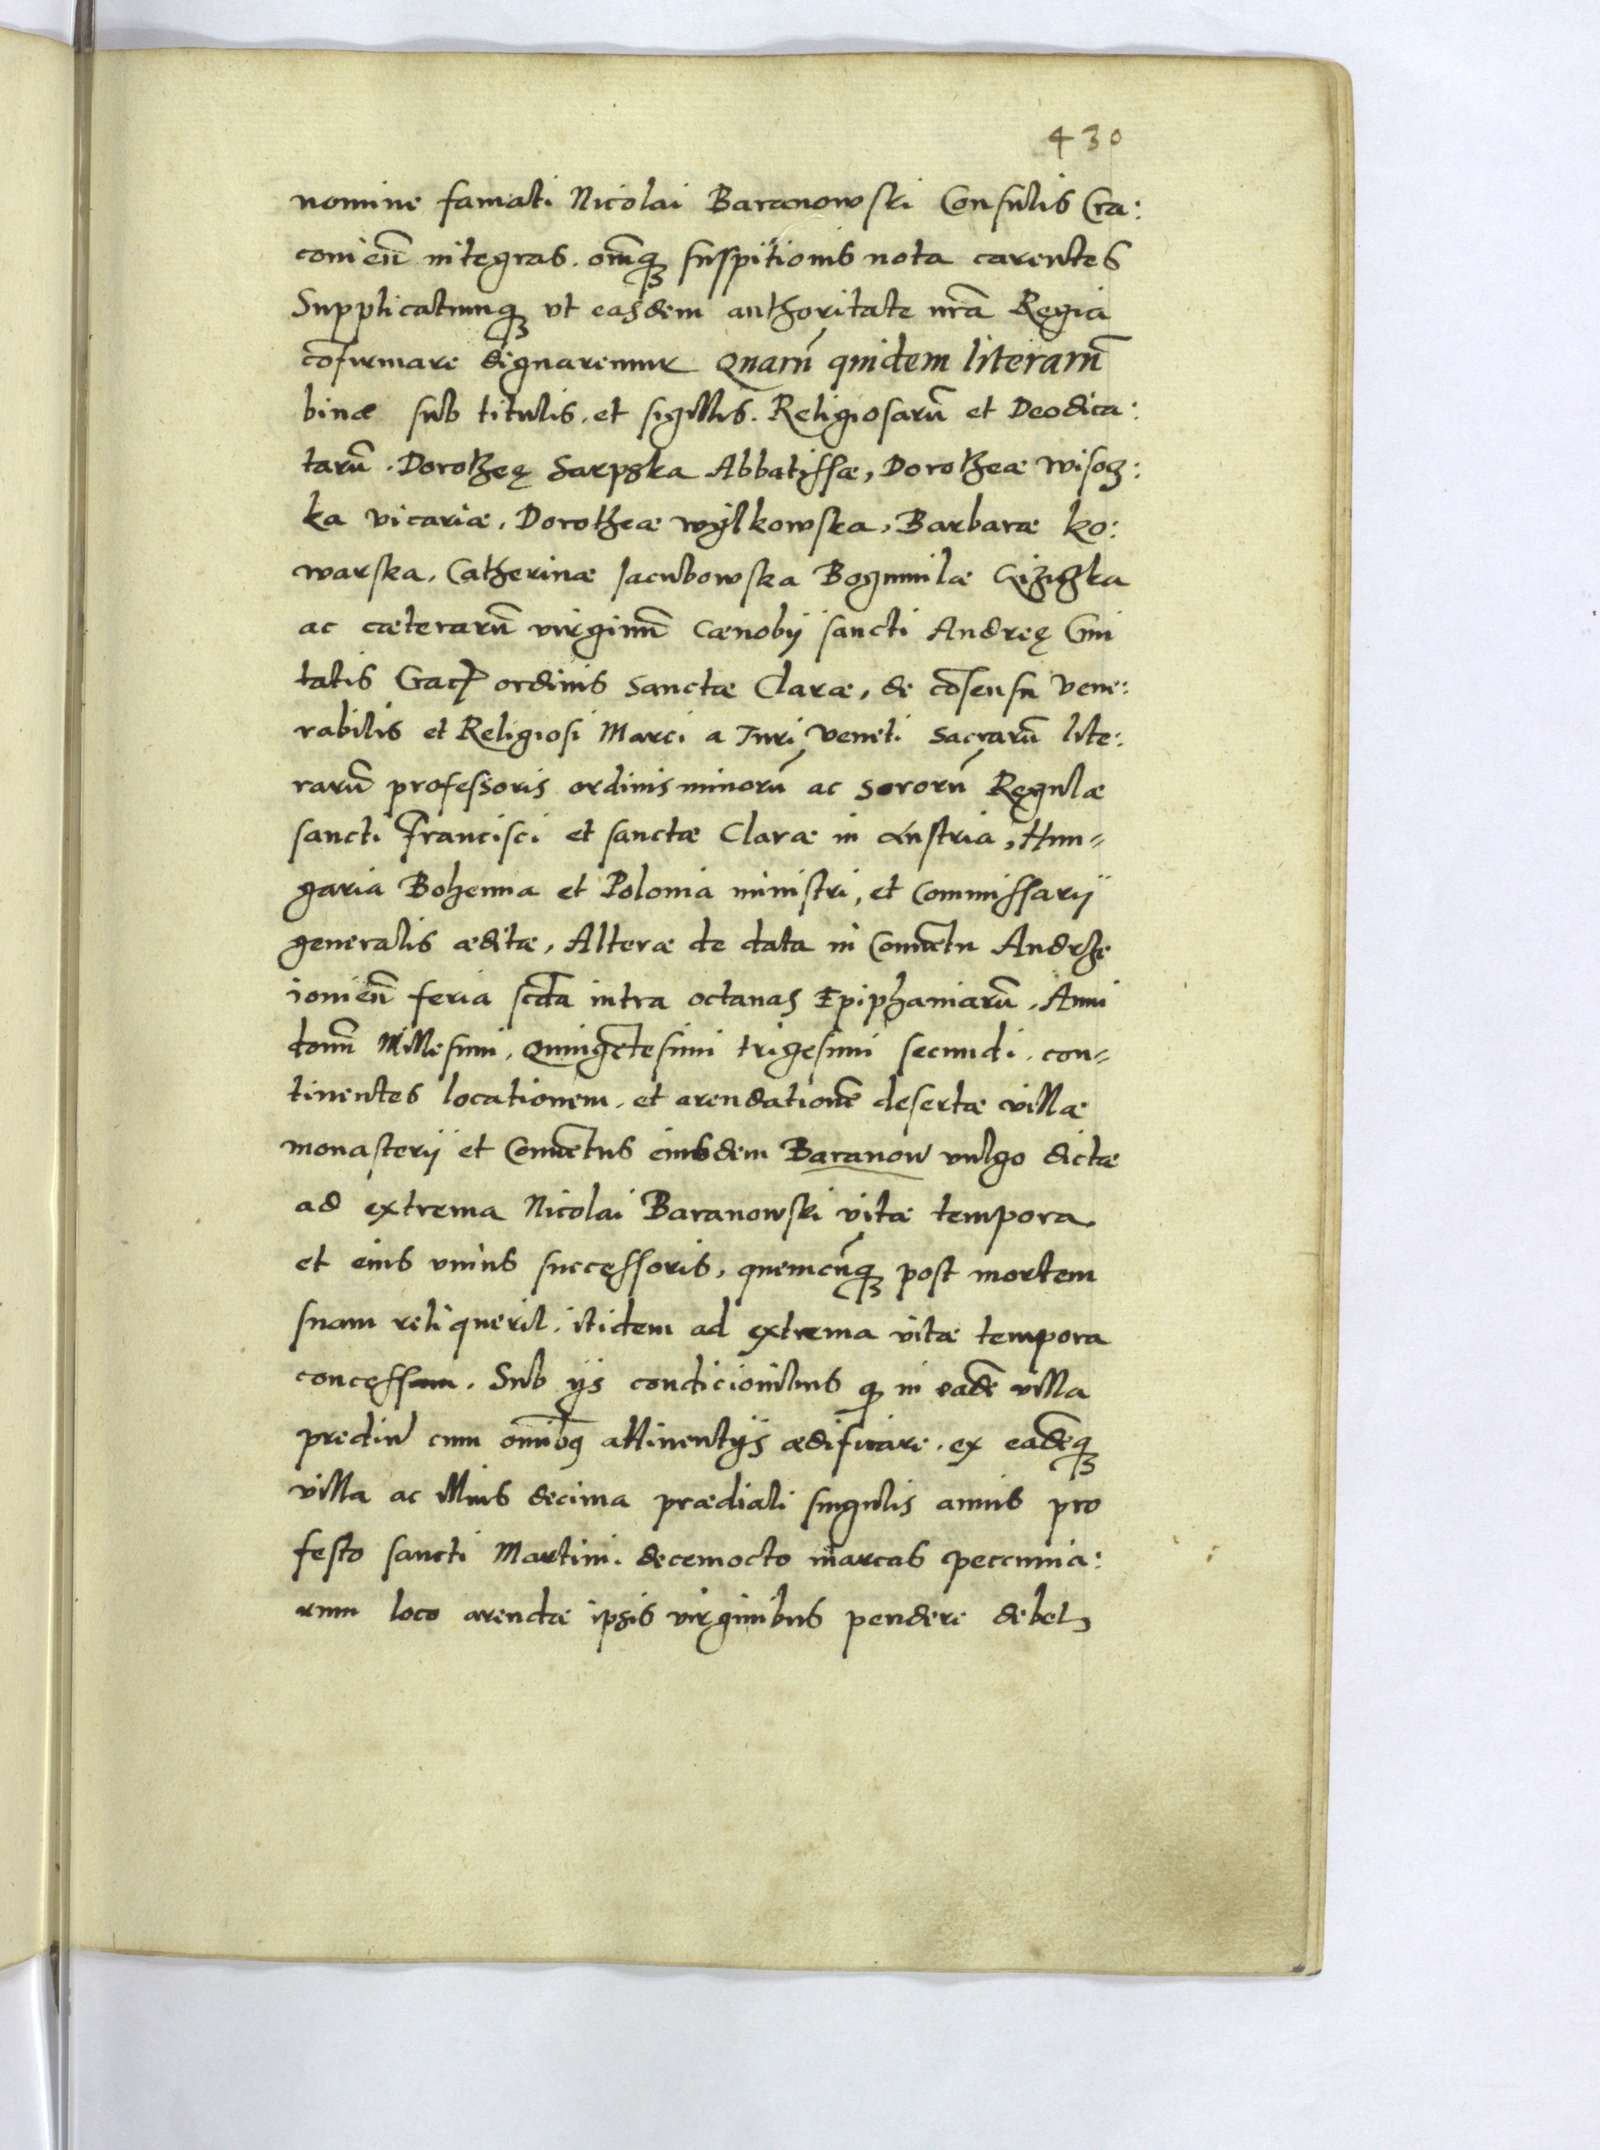 430
nomine famati Nicolai Baranowski Consulis Cra:
covien̄ integras. om̄qꝫ suspitionis nota carentes
Supplicatumqꝫ vt easdem authoritate nr̄a Regia
cōfirmare dignaremur Quarū quidem literarū
binæ sub titulis, et sigillis. Religiosarū et Deodica:
tarū. Dorotheę Sarpska Abbatissæ, Dorotheæ wisoczÿ:
ka vicariæ, Dorotheæ wÿlkowska, Barbaræ ko:
warska, Catherinæ Jacubowska Bogumilæ
ac cæterarū virginū Cænobij sancti Andreę Ciui
tatis Crac̄ ordinis Sanctæ Claræ, de cōsensu vene:
rabilis et Religiosi Marci a Turi Veneti Sacrarū lite:
rarū professoris ordinis minorū ac Sororū Regulæ
sancti Francisci et sanctæ Claræ in Austria, Hun=
garia Bohemia et Polonia ministri, et Commissarij
generalis æditæ, Alteræ de data in Conuētu Andrze
iouien̄ feria scd̄a intra octauas Epiphaniarū, Anni
domī Millesimi, Quingētesimi trigesimi secundi. con=
tinentes locationem, et arendationē desertæ villæ
monasterij et Conuētus eiusdem Baranow vulgo dictæ
ad extrema Nicolai Baranowski vitæ tempora
et eius vnius successoris, quemcūqꝫ post mortem
suam reliquerit, itidem ad extrema vitæ tempora
concessam. Sub ijs condicionibus q̄ in eadē villa
prediū cum omībꝯ attinentijs ædificare, ex eadēqꝫ
villa ac illius decima prædiali singulis annis pro
festo sancti Martini. decemocto marcas peccunia:
rum loco arendæ ipsis virginibus pendere debet,